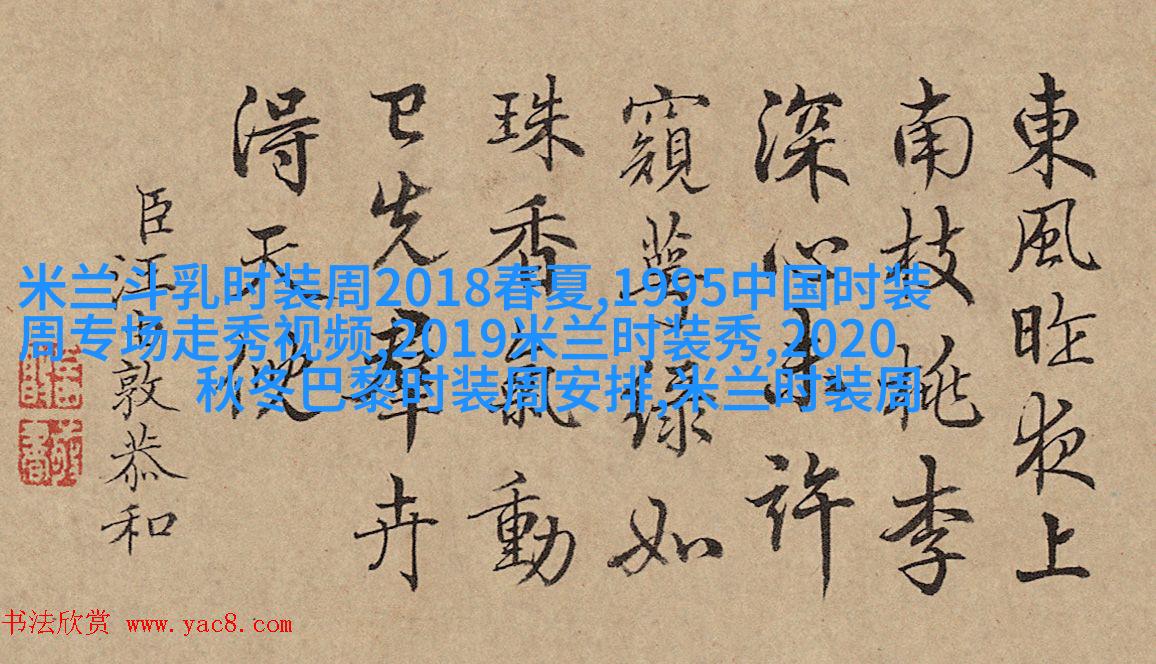 東風昨夜上
南枝桃李
深心未許
窺萼緑如
珠香氣動
已先羣卉
得天
臣汪由敦恭和
米兰斗乳时装周2018春夏,1995中国时装
周专场走秀视频,2019米兰时装秀,2020
秋冬巴黎时装周安排,米兰时装周
书法欣赏 www.yac8.com